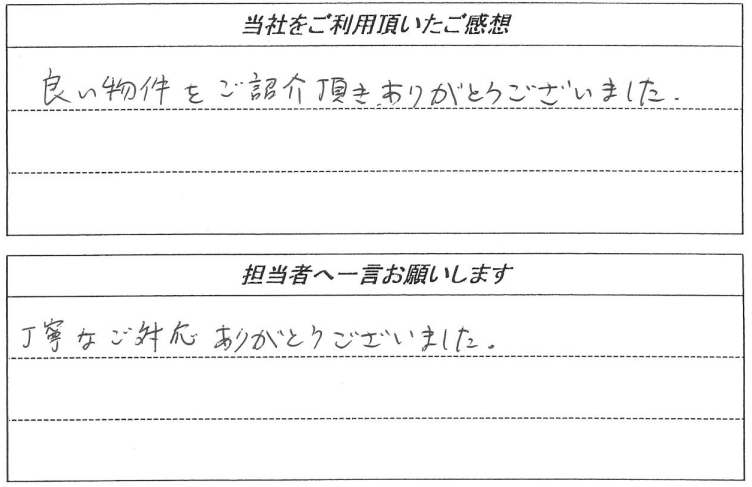 当社をご利用頂いたご感想
良い物件をご紹介頂きありがとうございました.
担当者へ一言お願いします
丁寧なご対応ありがとうございました。